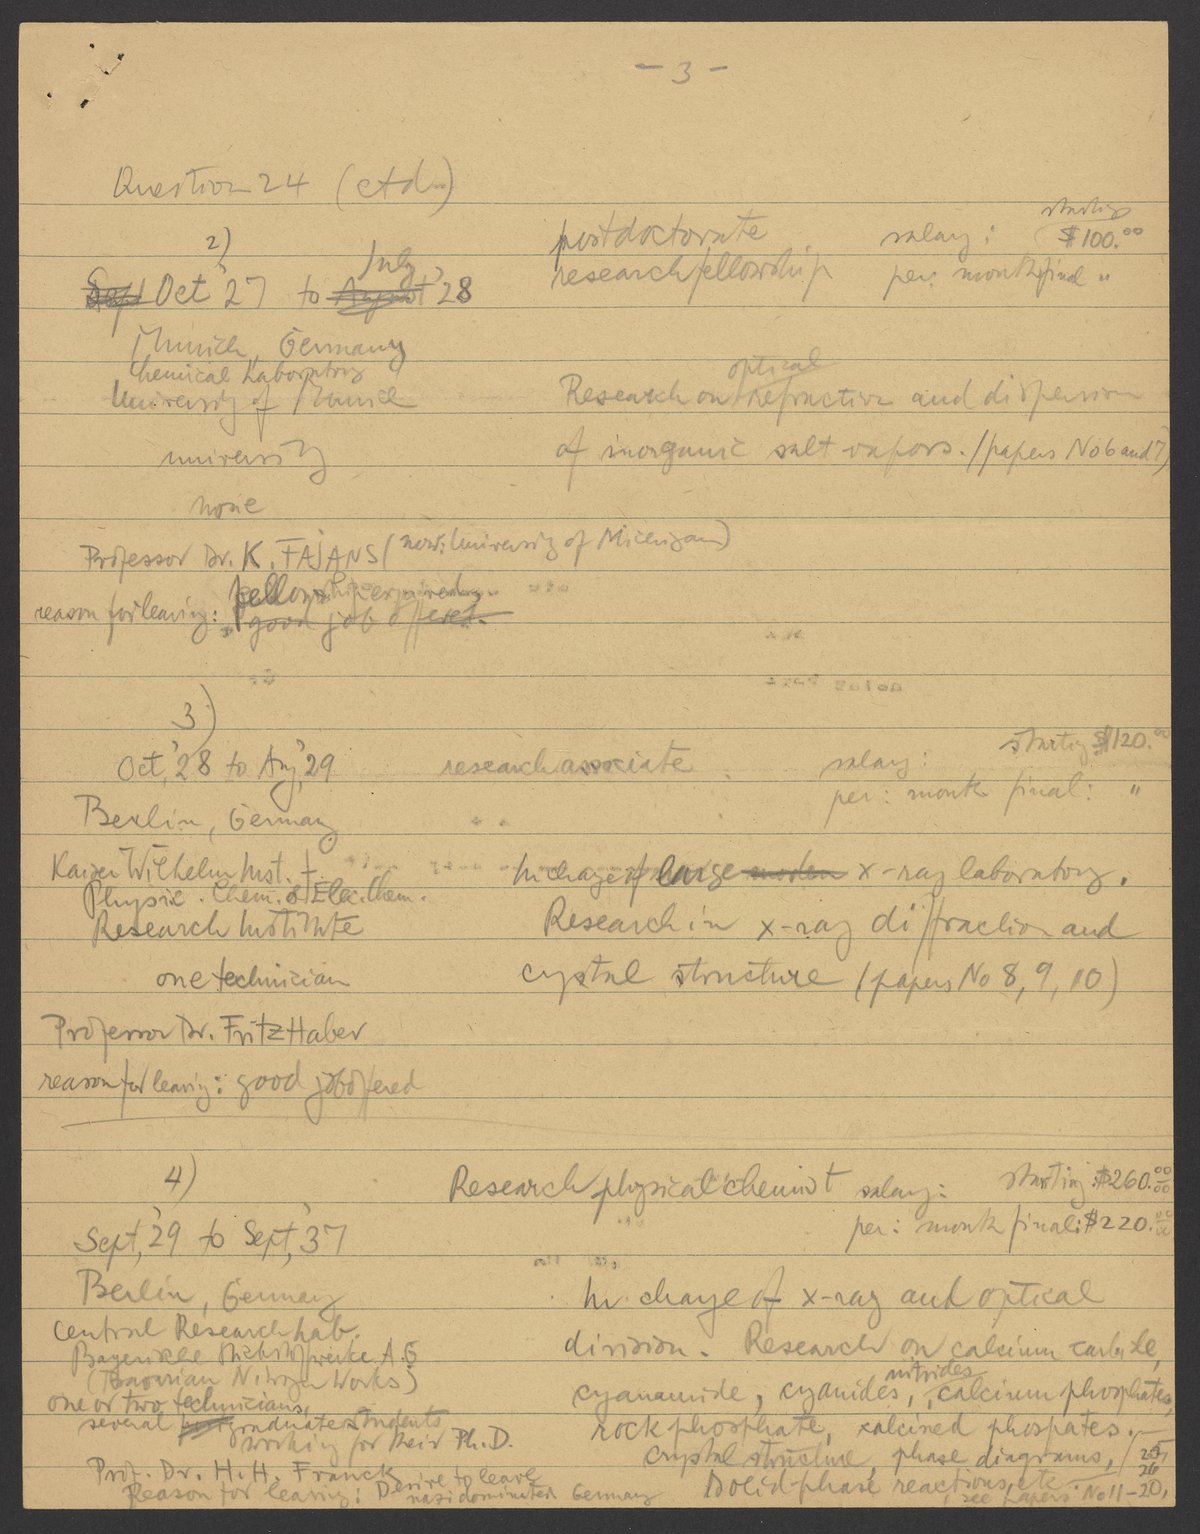 - 3 -
Question 24 (ctd.)
2)
Sept Oct '27 to August July '28
postdoctorate
research fellowship
salary: starting $100.00
per: month final "
Munich, Germany
Chemical Laboratory
University of Munich
Research on optical refraction and dispersion
of inorganic salt vapors. (papers No 6 and 7)
university
none
Professor Dr. K. FAJANS (now: University of Michigan)
reason for leaving: fellowship expired
good job offered.
3)
Oct, '28 to Aug, '29
research associate
salary: starting $120.00
per: month final: "
Berlin, Germany
Kaiser Wilhelm Inst. f.
Physic. Chem. & Elec. Chem.
Research Institute
In charge of large modern x-ray laboratory.
Research in x-ray diffraction and
crystal structure (papers No 8, 9, 10)
one technician
Professor Dr. Fritz Haber
reason for leaving: good job offered
4)
Research physical chemist
salary: starting: $260.00
per: month final: $220.00
Sept, '29 to Sept, '37
Berlin, Germany
Central Research Lab.
Bayerische Stickstoffwerke A.G
(Bavarian Nitrogen Works)
one or two technicians,
several graduate students
working for their Ph.D.
Prof. Dr. H. H. Franck
Reason for leaving: Desire to leave
nazi dominated Germany
In charge of x-ray and optical
division. Research on calcium carbide,
cyanamide, cyanides, nitrides, calcium phosphates,
rock phosphate, calcined phospates.
crystal structure, phase diagrams,
solid-phase reactions, etc.
see papers No 11-20,
25,
26